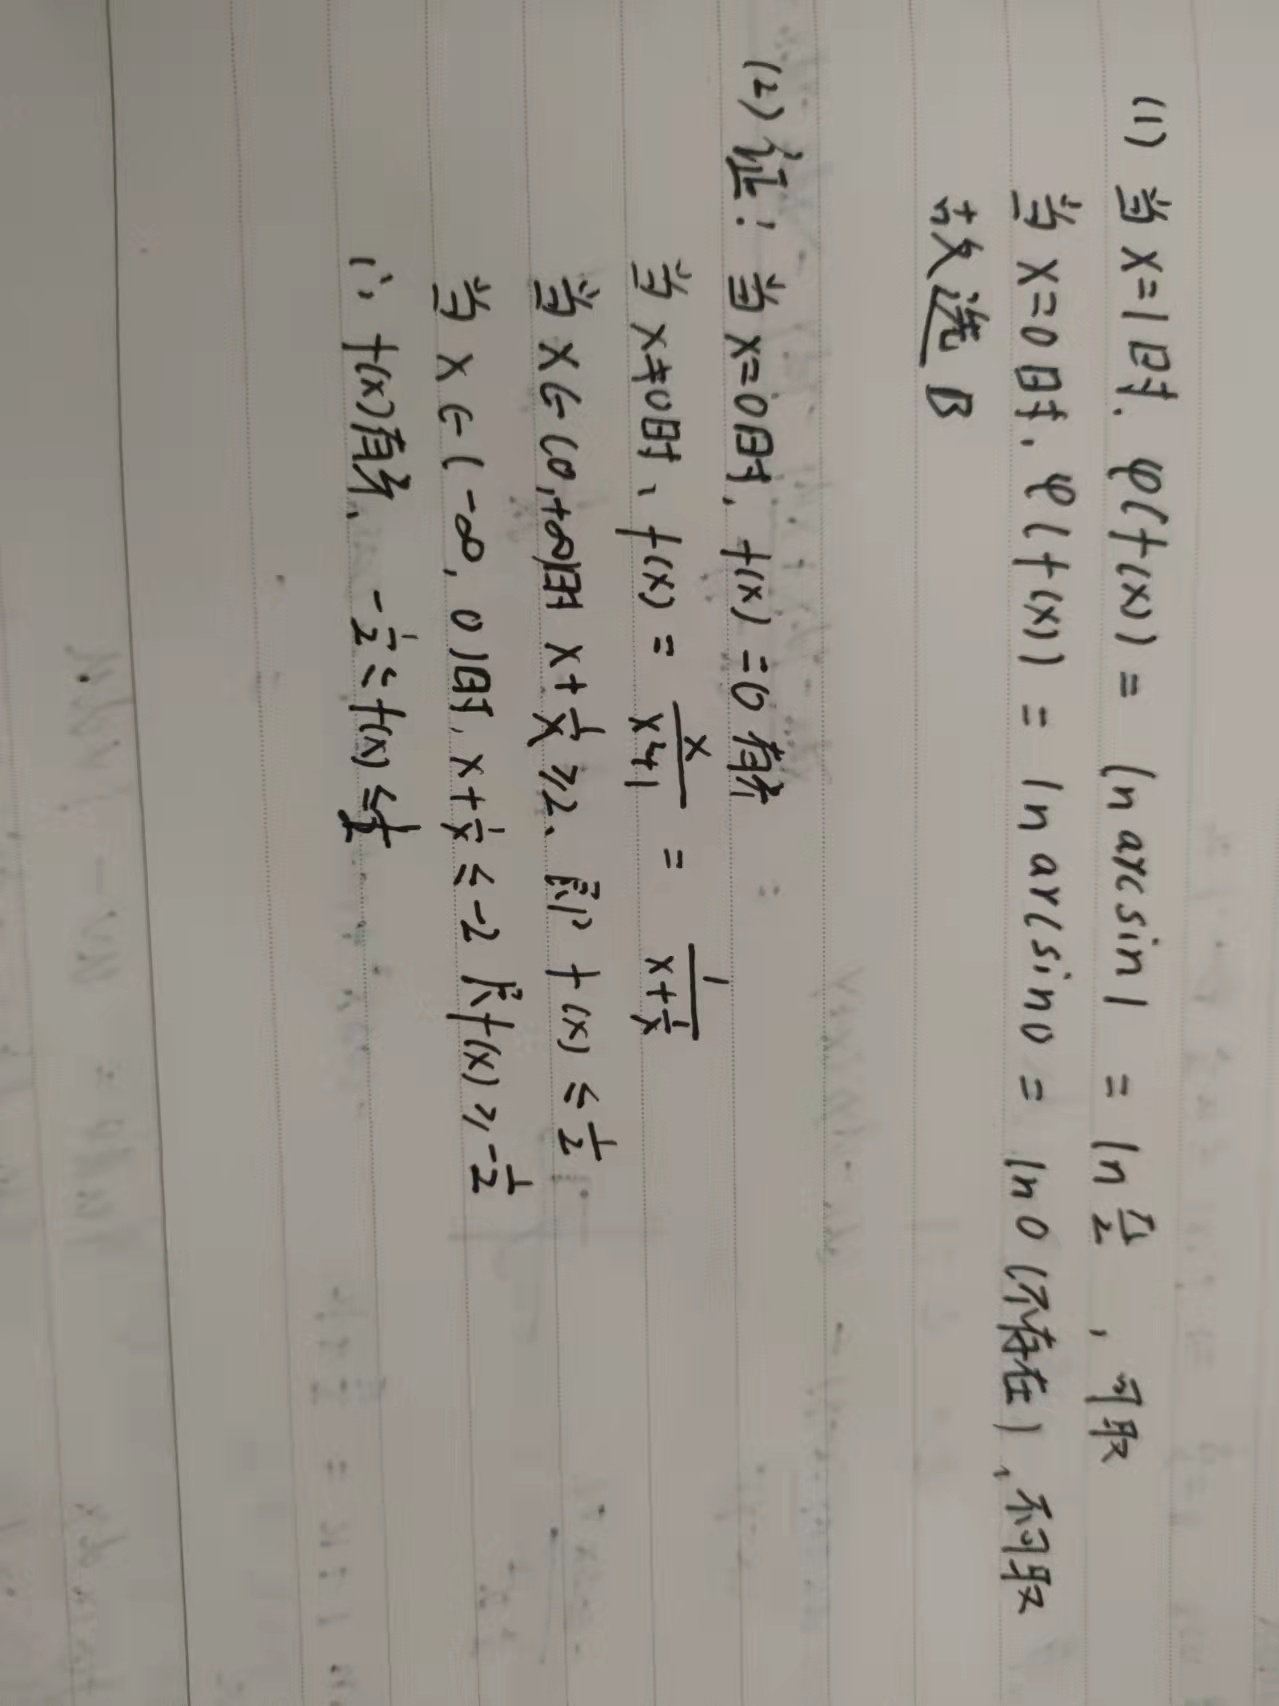 (1) 当 x=1时, φ(f(x)) = ln arcsin1 = ln π/2 , 可取
当 x=0时, φ(f(x)) = ln arcsin0 = ln0 (不存在), 不可取
故选 B
(2) 证: 当 x=0时, f(x) =0 有界
当 x≠0时、f(x) = x/(x²+1) = 1/(x+1/x)
当 x∈(0,+∞)时 x+1/x ≥2、即 f(x) ≤ 1/2
当 x∈(-∞, 0)时, x+1/x ≤ -2 即f(x) ≥ -1/2
∴ f(x)有界、 -1/2 ≤ f(x) ≤ 1/2